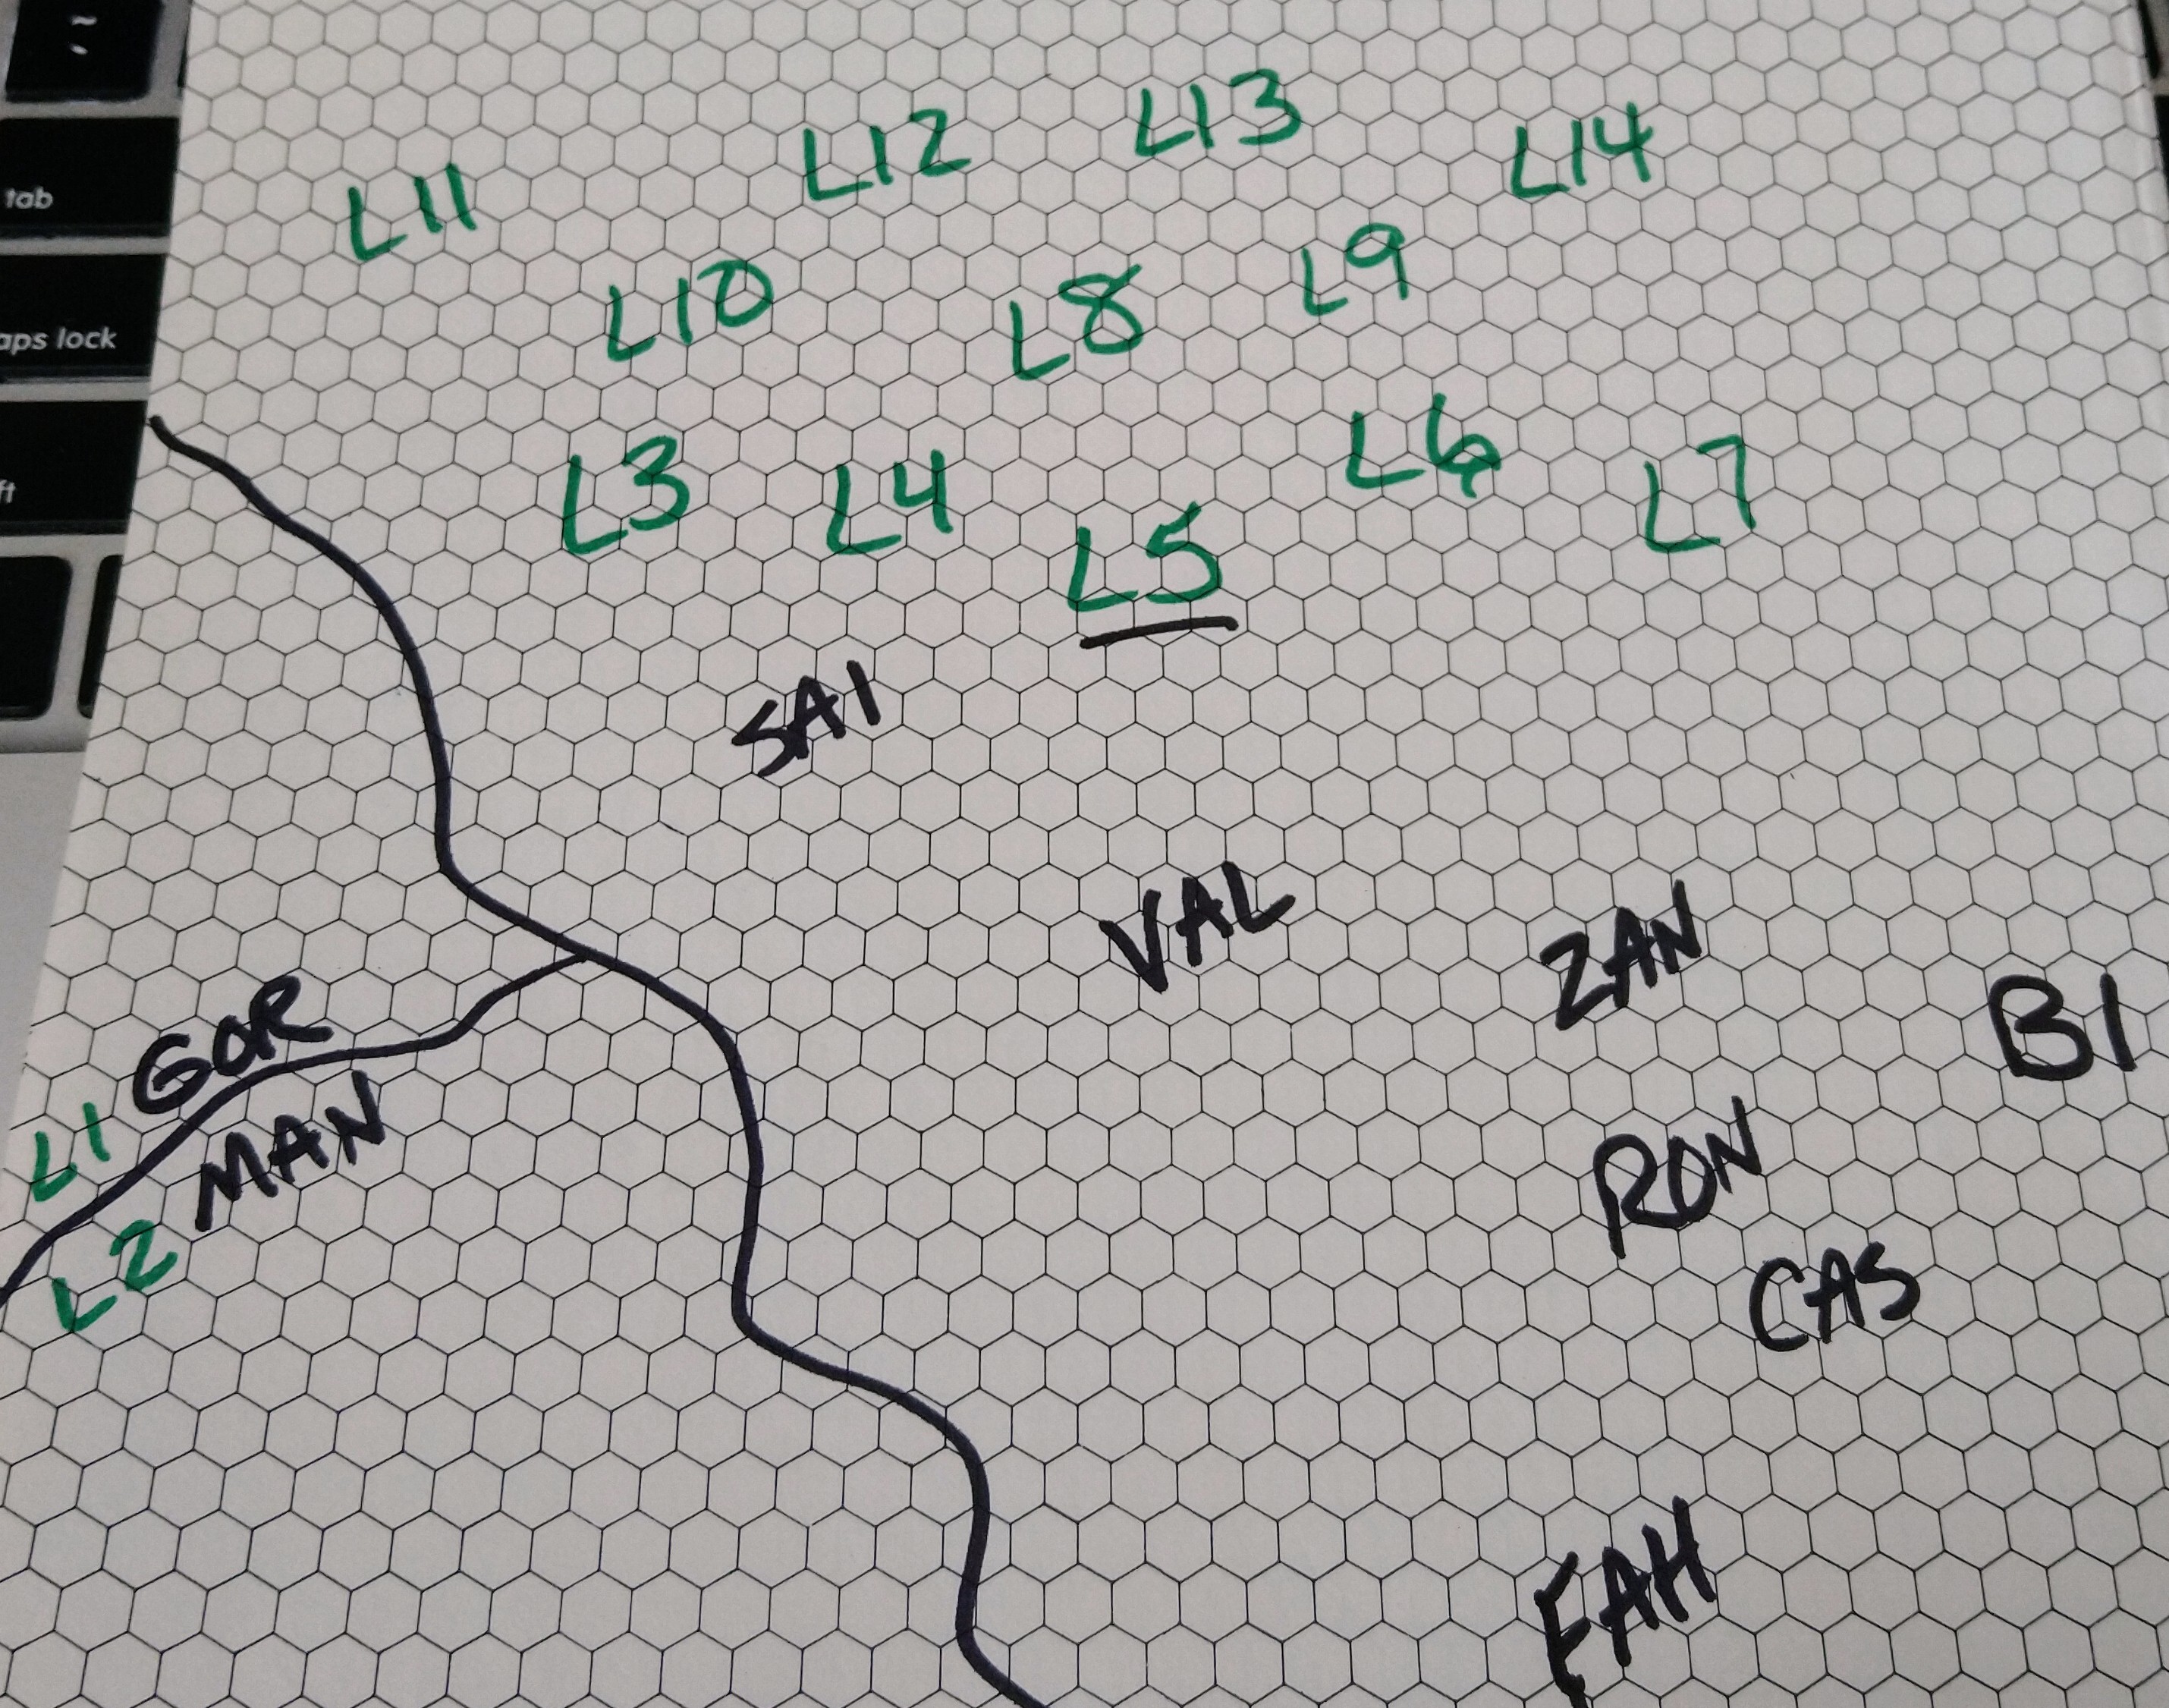 ~
`
tab
aps lock
ft
L13
L12
L14
L11
L9
L10
L8
L6
L3
L4
L7
L5
SAI
VAL
ZAN
B1
GOR
L1
MAN
RON
L2
CAS
FAH